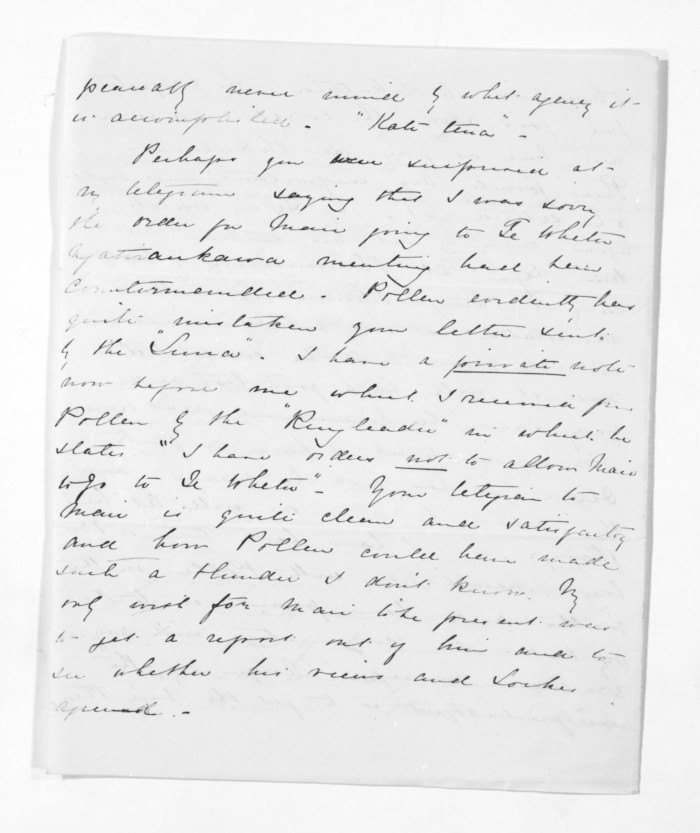 peaceably never mind by what agency it
is accomplished - "Kati tena" -
Perhaps you were surprised at
my telegram saying that I was sorry
the order for Mair going to Te Whetu
meeting had been
countermanded - Pollen evidently has
quite mistaken your letter sent
by the "Luna" - I have a private note
now before me which I received from
Pollen by the "Ringleader" in which he
states "I have orders not to allow Mair
to go to Te Whetu" - Your telegram to
Mair is quite clear and satisfactory
and how Pollen could have made
such a blunder I don't know. My
only wish for Mair to be present was
to get a report out of him and to
see whether his views and Lockes
agreed -